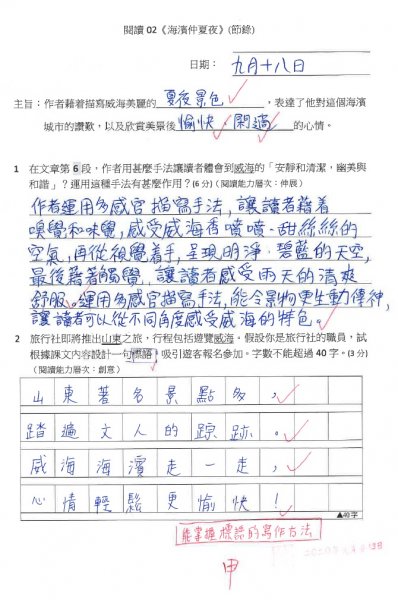 閱讀 02《海濱仲夏夜》(節錄)
日期: 九月十八日
主旨:作者藉着描寫威海美麗的 夏夜景色 ,表達了他對這個海濱
城市的讚歎,以及欣賞美景後 愉快、閑適 的心情。
1 在文章第 6 段,作者用甚麼手法讓讀者體會到威海的「安靜和清潔,幽美與
和諧」?運用這種手法有甚麼作用?(6 分) (閱讀能力層次:伸展)
作者運用多感官描寫手法,讓讀者藉着
嗅覺和味覺,感受威海香噴噴、甜絲絲的
空氣,再從視覺着手,呈現明淨、碧藍的天空,
最後藉着觸覺,讓讀者感受雨天的清爽
舒服。運用多感官描寫手法,能令景物更生動傳神,
讓讀者可以從不同角度感受威海的特色。
2 旅行社即將推出山東之旅,行程包括遊覽威海。假設你是旅行社的職員,試
根據課文內容設計一句標語,吸引遊客報名參加。字數不能超過 40 字。(3 分)
(閱讀能力層次:創意)
山東著名景點多,
踏遍文人的踪跡。
威海海濱走一走,
心情輕鬆更愉快!
▲40 字
能掌握標語的寫作方法
甲